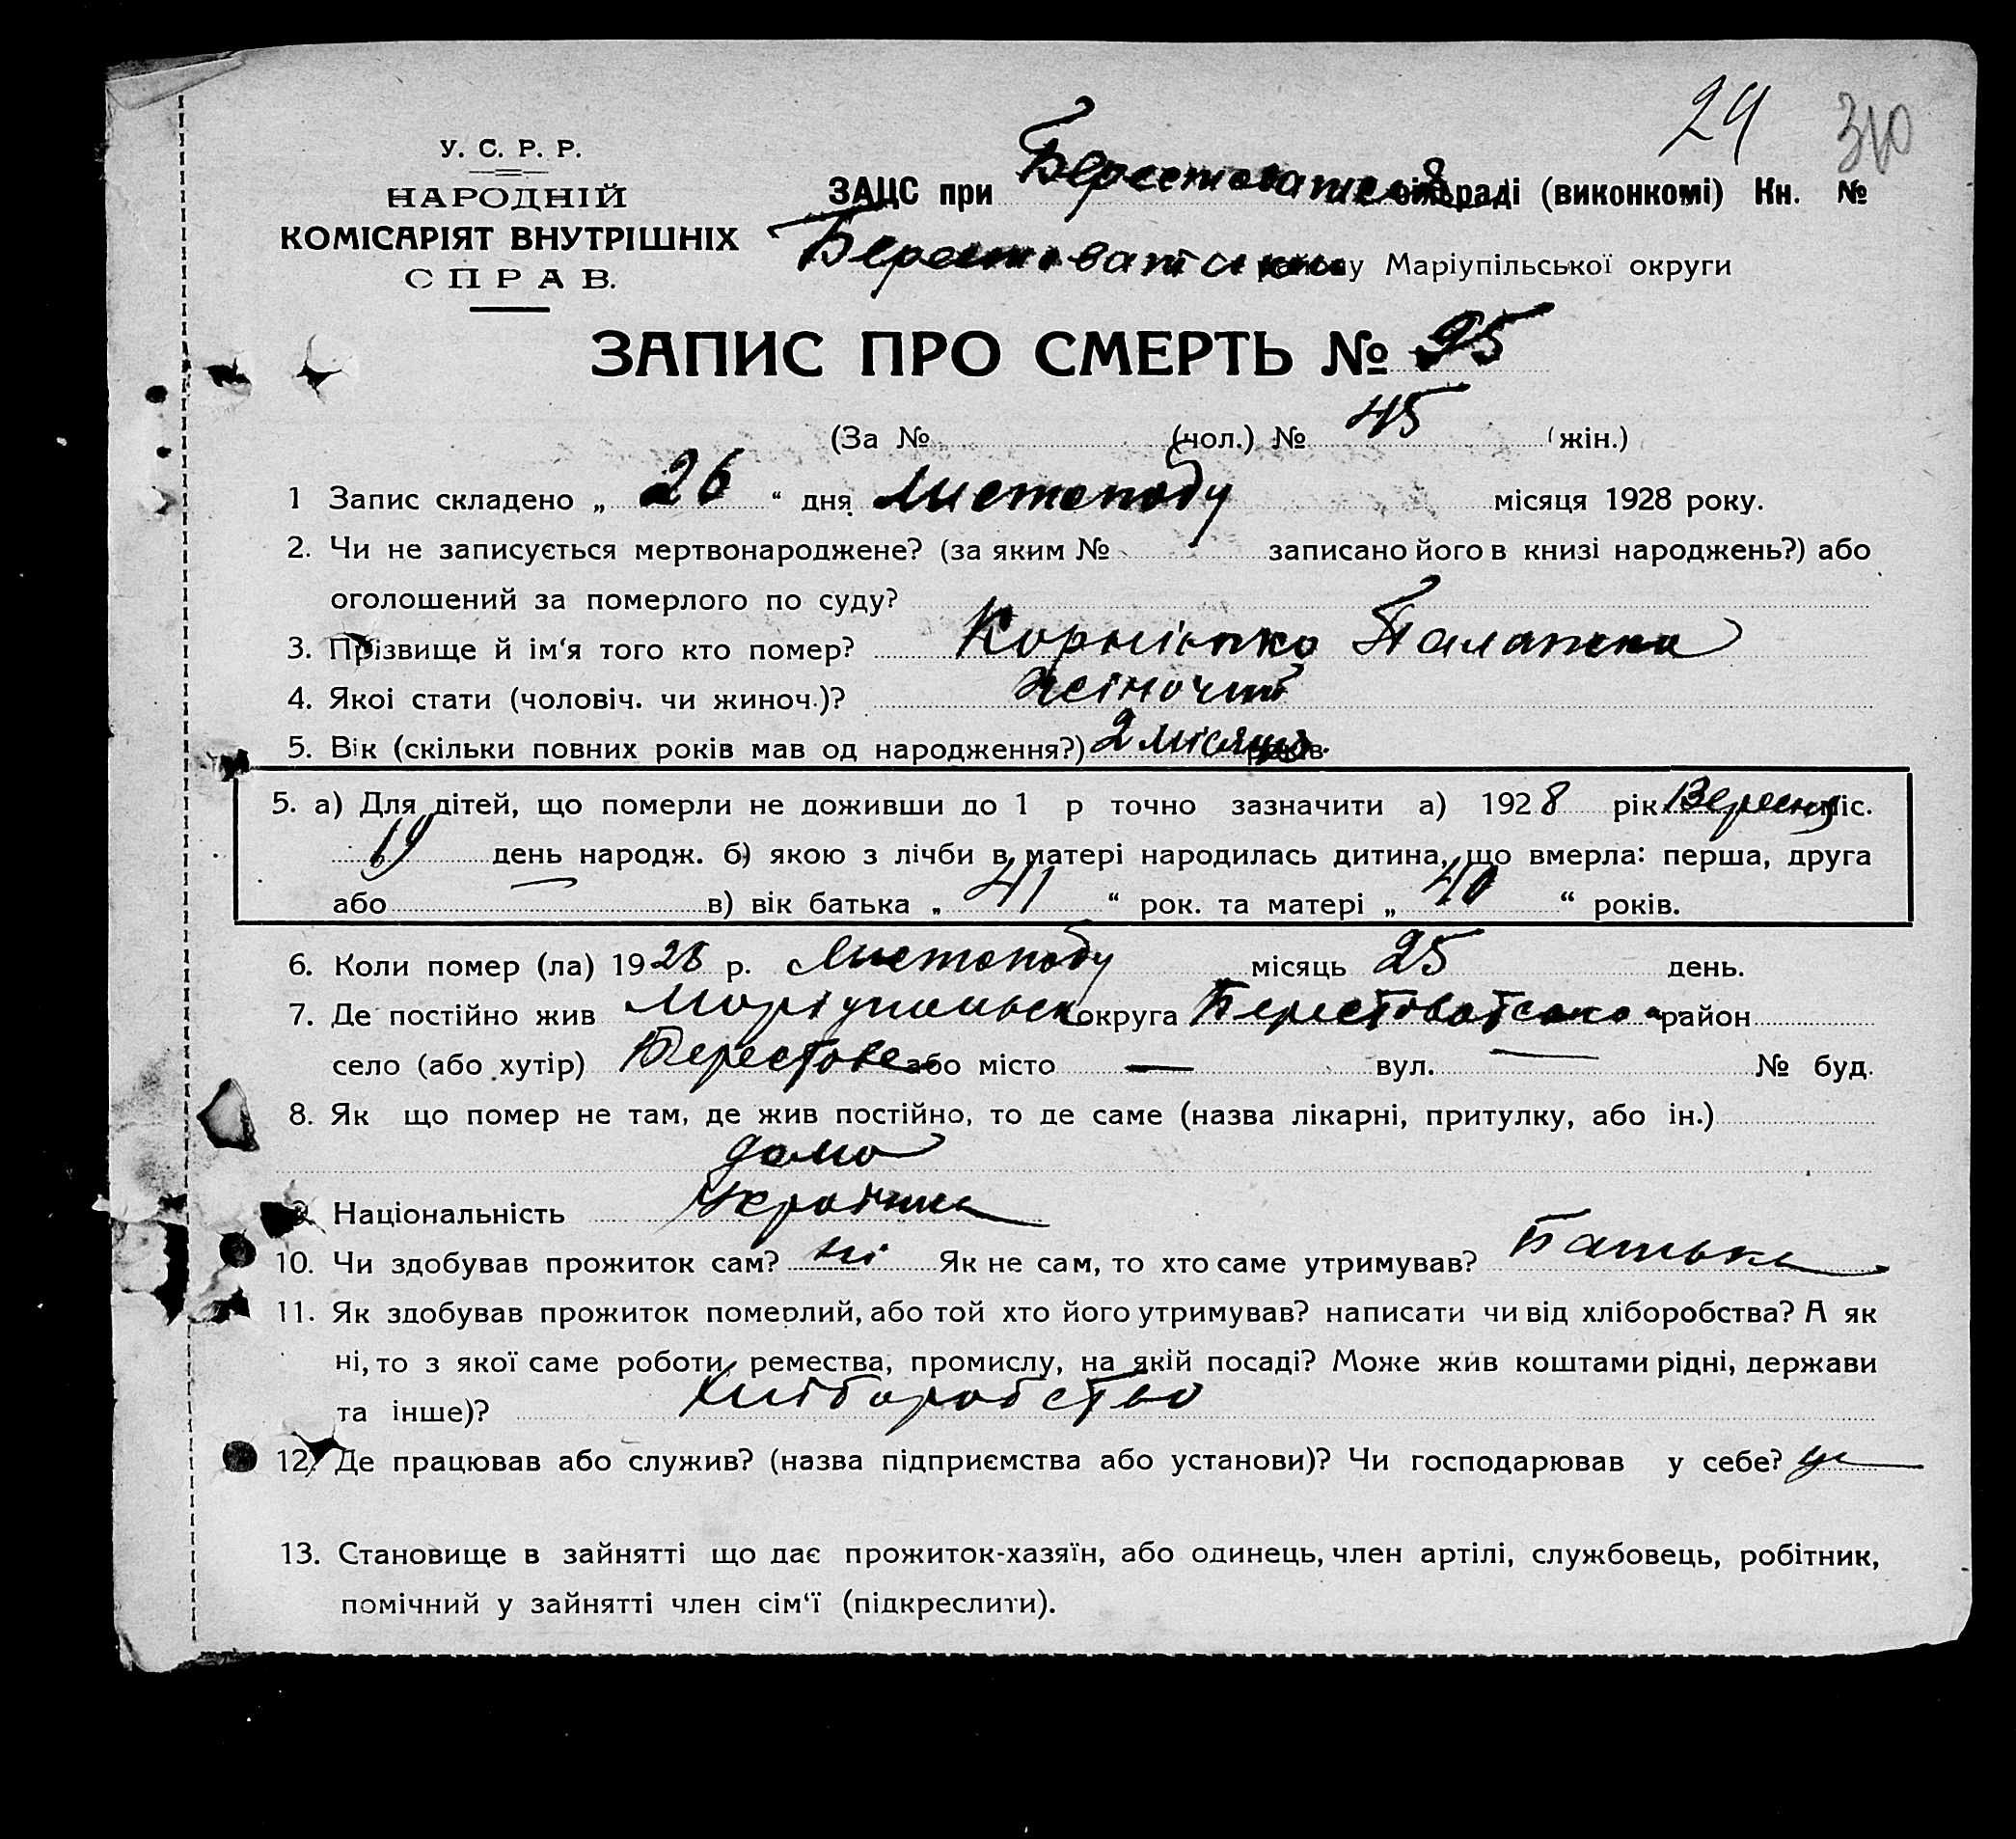 29 30
У. С. Р. Р.
НАРОДНІЙ
КОМІСАРІЯТ ВНУТРІШНІХ
СПРАВ.
ЗАЦС при Берестоватській сільраді (виконкомі) Кн. №
Берестоватськ району Маріупільської округи
ЗАПИС ПРО СМЕРТЬ № 95
(За № (чол.) № 45 (жін.)
1 Запис складено „ 26 “ дня Листопаду місяця 1928 року.
2. Чи не записується мертвонароджене? (за яким № записано його в книзі народжень?) або
оголошений за померлого по суду?
3. Прізвище й ім‘я того кто помер? Палажка
4. Якоі стати (чоловіч. чи жиноч.)? жіночит
5. Вік (скільки повних років мав од народження?) 2 місяця років.
5. а) Для дітей, що померли не доживши до 1 р точно зазначити а) 1928 рік Вересня міс.
19 день народж. б) якою з лічби в матері народилась дитина, що вмерла: перша, друга
або — в) вік батька „ 41 “ рок. та матері „ 40 “ років.
6. Коли помер (ла) 1928 р. Листопаду місяць 25 день.
7. Де постійно жив Маріупільськ округа Берестоватсько район
село (або хутір) Берестове або місто — вул. — № буд.
8. Як що помер не там, де жив постійно, то де саме (назва лікарні, притулку, або ін.)
дома
9. Національність Українка
10. Чи здобував прожиток сам? ні Як не сам, то хто саме утримував? Батьки
11. Як здобував прожиток померлий, або той хто його утримував? написати чи від хліборобства? А як
ні, то з якої саме роботи, ремества, промислу, на якій посаді? Може жив коштами рідні, держави
та інше)? хліборобство
12. Де працював або служив? (назва підприємства або установи)? Чи господарював у себе?
13. Становище в зайнятті що дає прожиток-хазяїн, або одинець, член артілі, службовець, робітник,
помічний у зайнятті член сім‘ї (підкреслити).